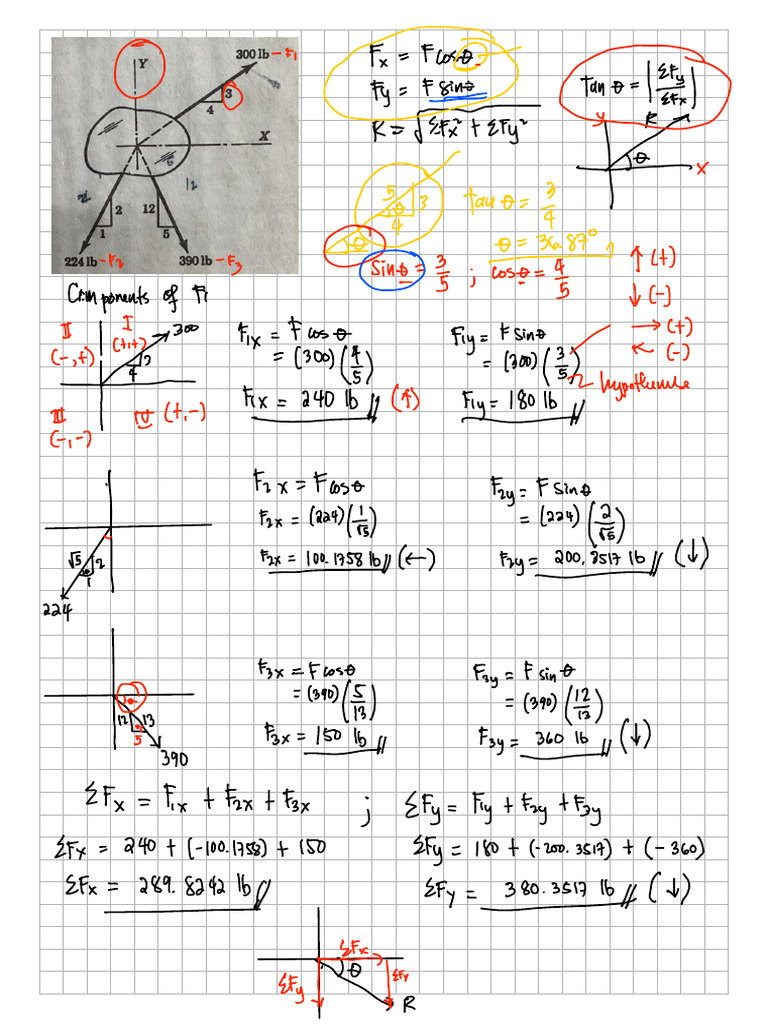 300 lb - F1
Y
3
4
X
2
1
12
5
224 lb - F2
390 lb - F3
Fx = F cos θ
Fy = F sin θ
R = √ΣFx² + ΣFy²
Tan θ = |ΣFy/ΣFx|
y
R
θ
x
5
3
θ
4
θ
tan θ = 3/4
θ = 36.87°
Sin θ = 3/5 ; cos θ = 4/5
↑ (+)
↓ (-)
→ (+)
← (-)
Components of F1
II
(-,+)
I
(+,+)
300
3
4
III
(-,-)
IV (+,-)
F1x = F cos θ
= (300) (4/5)
F1x = 240 lb (↑)
F1y = F sin θ
= (300) (3/5)
hypothenuse
F1y = 180 lb
√5
2
θ
1
224
F2x = F cos θ
F2x = (224) (1/√5)
F2x = 100.1758 lb (←)
F2y = F sin θ
= (224) (2/√5)
F2y = 200.3517 lb (↓)
θ
12
13
θ
5
390
F3x = F cos θ
= (390) (5/13)
F3x = 150 lb
F3y = F sin θ
= (390) (12/13)
F3y = 360 lb (↓)
ΣFx = F1x + F2x + F3x ; ΣFy = F1y + F2y + F3y
ΣFx = 240 + (-100.1758) + 150
ΣFy = 180 + (-200.3517) + (-360)
ΣFx = 289.8242 lb
ΣFy = 380.3517 lb (↓)
ΣFx
θ
ΣFy
ΣFy
R